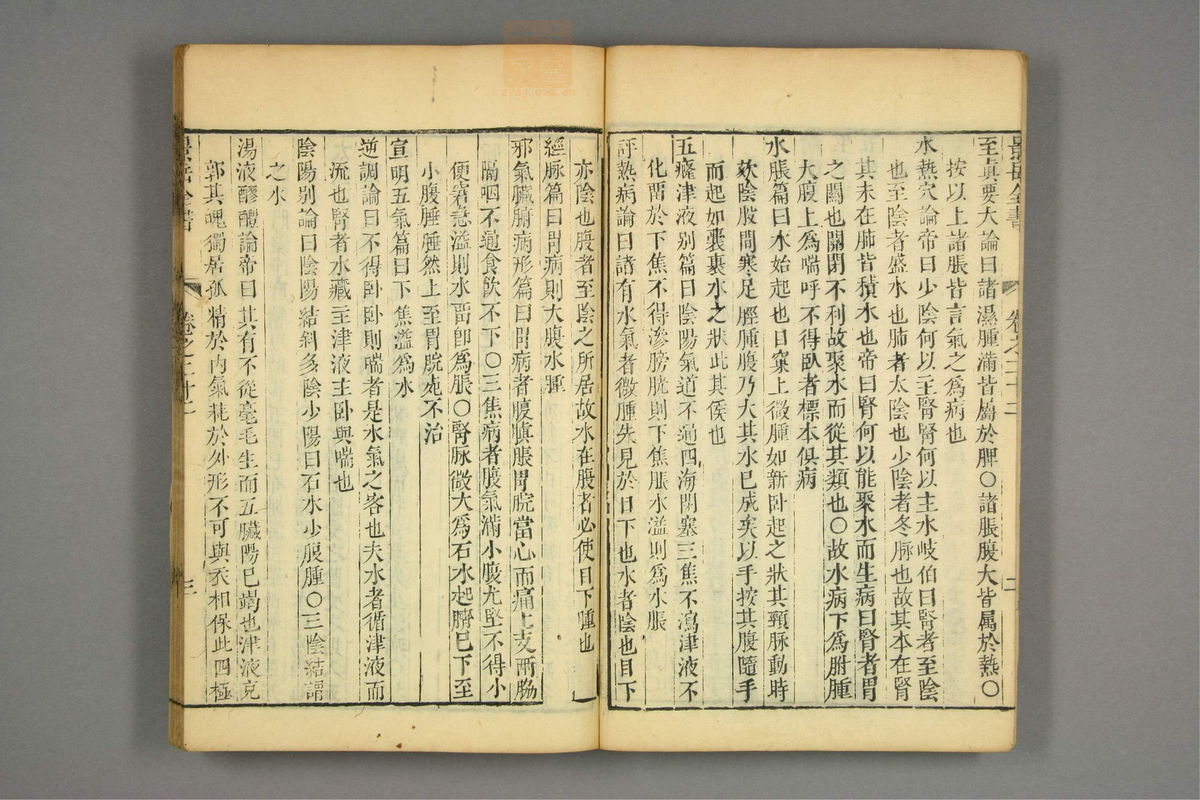 景岳全書 卷之二十二 二
至眞要大論曰諸濕腫滿皆屬於脾〇諸脹腹大皆屬於熱〇
按以上諸脹皆言氣之爲病也
水熱穴論帝曰少陰何以主腎腎何以主水岐伯曰腎者至陰
也至陰者盛水也肺者太陰也少陰者冬脉也故其本在腎
其末在肺皆積水也帝曰腎何以能聚水而生病曰腎者胃
之關也關閉不利故聚水而從其類也〇故水病下爲胕腫
大腹上爲喘呼不得臥者標本俱病
水脹篇曰水始起也目窠上微腫如新卧起之狀其頸脉動時
欬陰股間寒足脛腫腹乃大其水已成矣以手按其腹隨手
而起如裹裹水之狀此其侯也
五癃津液别篇曰陰陽氣道不通四海閉塞三焦不瀉津液不
化畱於下焦不得滲膀胱則下焦脹水溢則爲水脹
評熱病論曰諸有水氣者微腫先見於目下也水者陰也目下
亦陰也腹者至陰之所居故水在腹者必使目下腫也
經脉篇曰胃病則大腹水腫
邪氣臟腑病形篇曰胃病者腹䐜脹胃脘當心而痛上支兩脇
膈咽不通食飲不下〇三焦病者腹氣滿小腹尤堅不得小
便窘急溢則水畱卽爲脹〇腎脉微大爲石水起臍已下至
小腹腄腄然上至胃脘死不治
宣明五氣篇曰下焦溢爲水
逆調論曰不得卧卧則喘者是水氣之客也夫水者循津液而
流也腎者水藏主津液主卧與喘也
陰陽别論曰陰陽結斜多陰少陽曰石水少腹腫〇三陰結謂
之水
湯液醪醴論帝曰其有不從毫毛生而五臟陽已竭也津液充
郭其魄獨居孤精於内氣耗於外形不可與衣相保此四極
景岳全書 卷之二十二 三